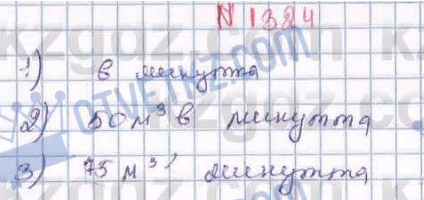 N 1324
1) 6 минутта
2) 50 м³ в минутта
3) 75 м³ минутта